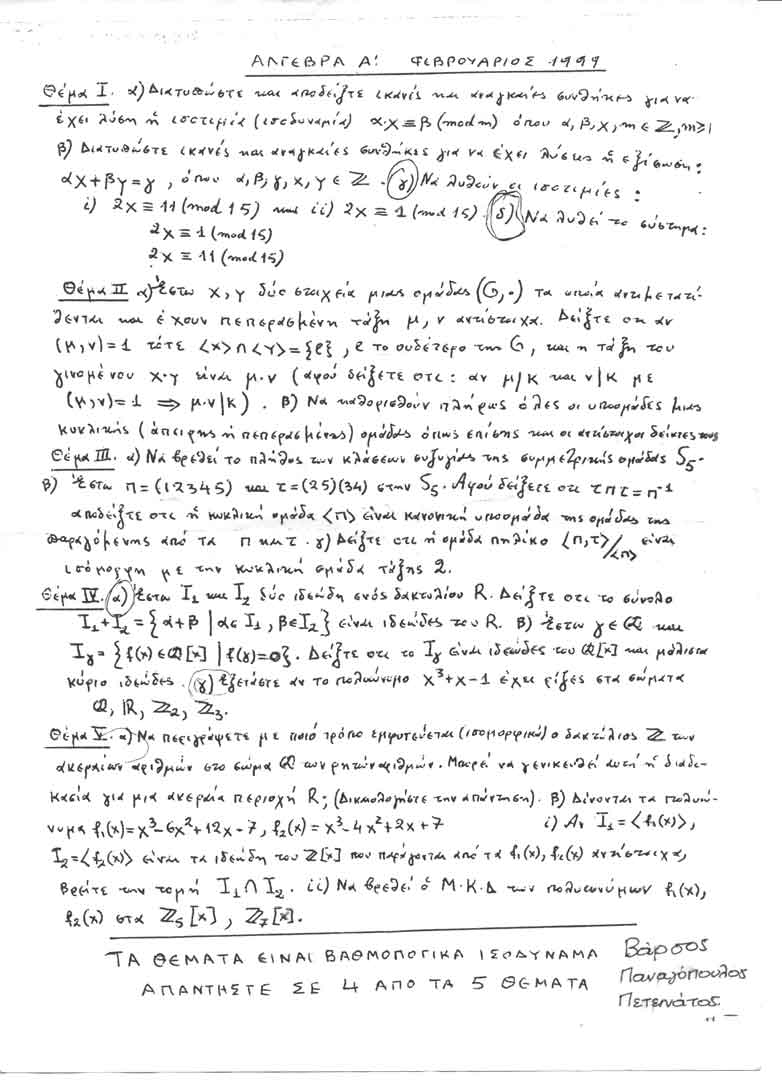 ΑΛΓΕΒΡΑ Α' ΦΕΒΡΟΥΑΡΙΟΣ 1999
Θέμα Ι. α) Διατυπώστε και αποδείξτε ικανές και αναγκαίες συνθήκες για να
έχει λύση ἡ ισοτιμία (ισοδυναμία) α·x ≡ β (mod m) όπου α, β, x, m ∈ ℤ, m≥1
β) Διατυπώστε ικανές και αναγκαίες συνθήκες για να έχει λύσεις ἡ εξίσωση:
αx + βy = γ , όπου α, β, γ, x, y ∈ ℤ. γ) Να λυθούν οι ισοτιμίες:
i) 2x ≡ 11 (mod 15) και ii) 2x ≡ 1 (mod 15). δ) Να λυθεί το σύστημα:
2x ≡ 1 (mod 15)
2x ≡ 11 (mod 15)
Θέμα ΙΙ α) Έστω x, y δύο στοιχεία μιας ομάδας (G,·) τα οποία αντιμετατί-
θενται και έχουν πεπερασμένη τάξη μ, ν αντίστοιχα. Δείξτε οτι αν
(μ,ν)=1 τότε <x>∩<y>={e}, e το ουδέτερο της G, και η τάξη του
γινομένου x·y είναι μ·ν (αφού δείξετε οτι: αν μ/κ και ν|κ με
(μ,ν)=1 ⟹ μ·ν|κ). β) Να καθορισθούν πλήρως όλες οι υποομάδες μιας
κυκλικής (άπειρης ή πεπερασμένης) ομάδας όπως επίσης και οι αντίστοιχοι δείκτες τους
Θέμα ΙΙΙ. α) Να βρεθεί το πλήθος των κλάσεων συζυγίας της συμμετρικής ομάδας S₅.
β) Έστω π=(12345) και τ=(25)(34) στην S₅. Αφού δείξετε οτι τπτ=π⁻¹
αποδείξτε οτι ἡ κυκλική ομάδα <π> είναι κανονική υποομάδα της ομάδας της
παραγόμενης από τα π και τ. γ) Δείξτε οτι ἡ ομάδα πηλίκο <π,τ>/<π> είναι
ισόμορφη με την κυκλική ομάδα τάξης 2.
Θέμα IV. α) Έστω I₁ και I₂ δύο ιδεώδη ενός δακτυλίου R. Δείξτε οτι το σύνολο
I₁+I₂ = {α+β | α∈I₁, β∈I₂} είναι ιδεώδες του R. β) Έστω γ∈ℚ και
Iγ = {f(x)∈ℚ[x] | f(γ)=0}. Δείξτε οτι το Iγ είναι ιδεώδες του ℚ[x] και μάλιστα
κύριο ιδεώδες. γ) Εξετάστε αν το πολυώνυμο x³+x-1 έχει ρίζες στα σώματα
ℚ, ℝ, ℤ₂, ℤ₃.
Θέμα V. α) Να περιγράψετε με ποιό τρόπο εμφυτεύεται (ισομορφικά) ο δακτύλιος ℤ των
ακεραίων αριθμών στο σώμα ℚ των ρητών αριθμών. Μπορεί να γενικευθεί αυτή ἡ διαδι-
κασία για μια ακεραία περιοχή R; (Δικαιολογήστε την απάντηση). β) Δίνονται τα πολυώ-
νυμα f₁(x)=x³-6x²+12x-7, f₂(x)=x³-4x²+2x+7 i) Αν I₁=<f₁(x)>,
I₂=<f₂(x)> είναι τα ιδεώδη του ℤ[x] που παράγονται από τα f₁(x), f₂(x) αντίστοιχα,
βρείτε την τομή I₁∩I₂. ii) Να βρεθεί ὁ Μ.Κ.Δ των πολυωνύμων f₁(x),
f₂(x) στα ℤ₅[x], ℤ₇[x].
ΤΑ ΘΕΜΑΤΑ ΕΙΝΑΙ ΒΑΘΜΟΛΟΓΙΚΑ ΙΣΟΔΥΝΑΜΑ
ΑΠΑΝΤΗΣΤΕ ΣΕ 4 ΑΠΟ ΤΑ 5 ΘΕΜΑΤΑ
Βάρσος
Παναγόπουλος
Πετεινάτος